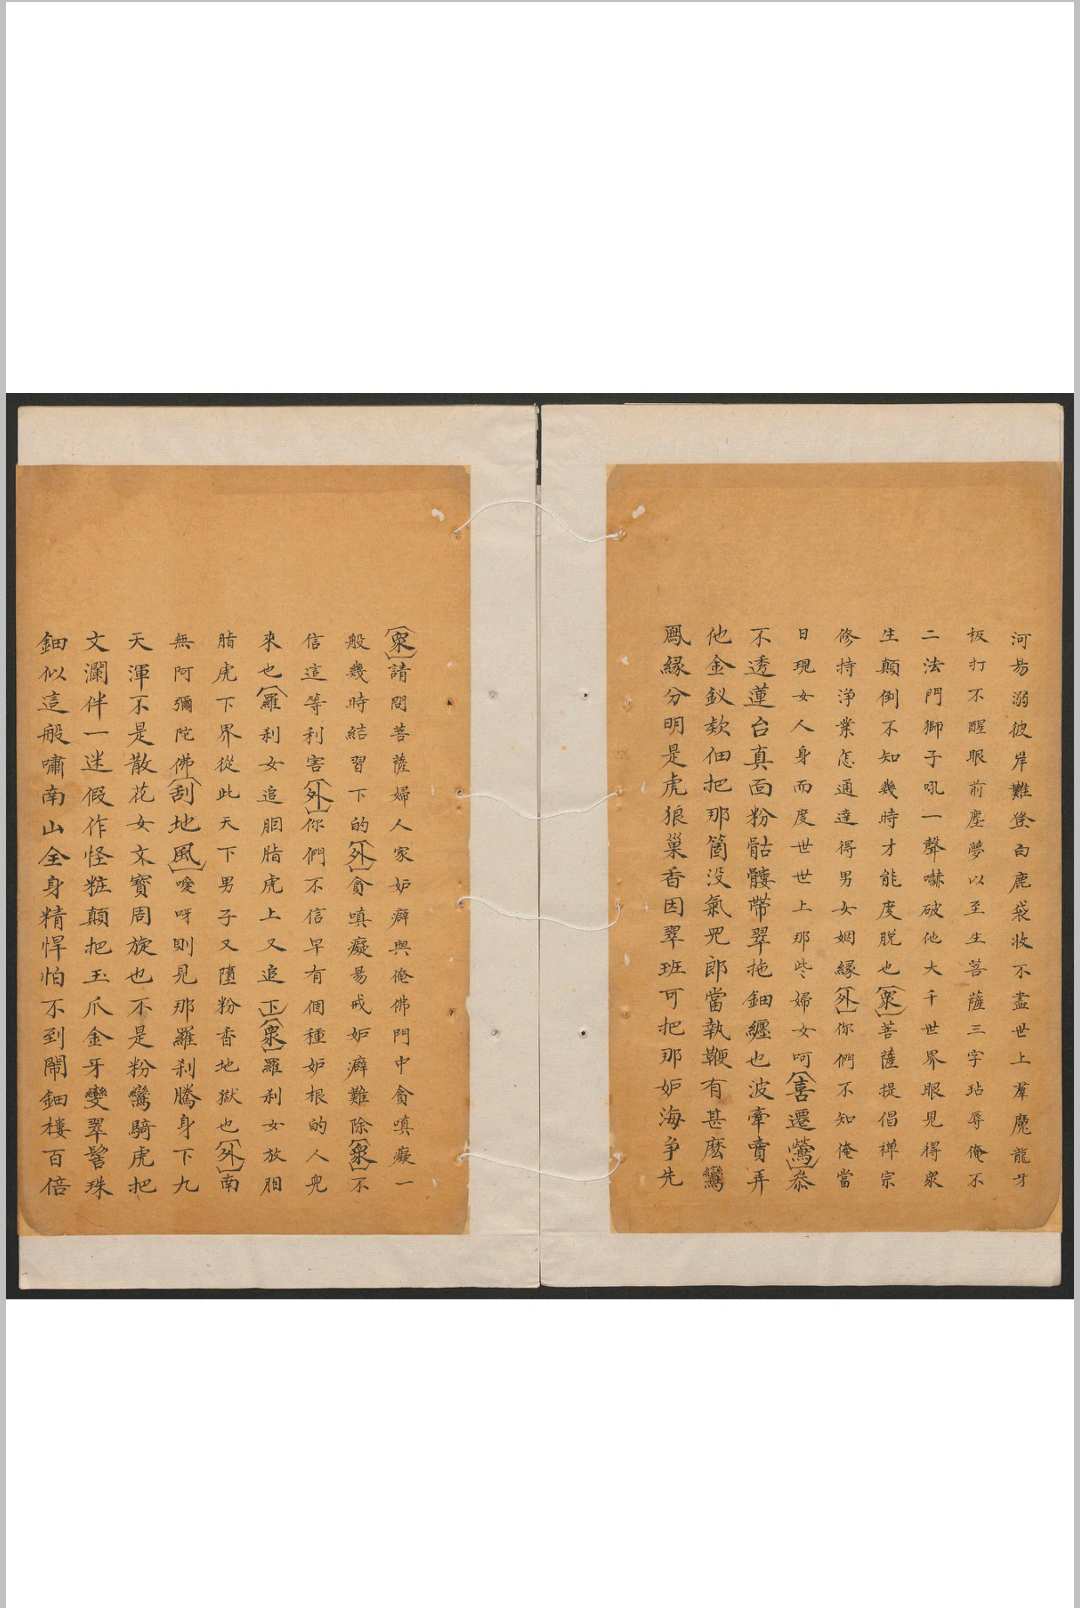 河易溺彼岸難登白鹿裘妝不盡世上羣魔龍牙
板打不醒眼前塵夢以至生菩薩三字玷辱俺不
二法門獅子吼一聲嚇破他大千世界眼見得衆
生顛倒不知幾時才能度脱也〔衆〕菩薩提倡禪宗
修持淨業怎通達得男女姻緣〔外〕你們不知俺當
日現女人身而度世世上那些婦女呵〔喜遷鶯〕叅
不透蓮台真面粉骷髏帶翠拖鈿纏也波牽賣弄
他金釵欵佃把那箇没氣兒郎當執鞭有甚麽鸞
鳳緣分明是虎狼巢香因翠班可把那妒海爭先
〔衆〕請問菩薩婦人家妒癖與俺佛門中貪嗔癡一
般幾時結習下的〔外〕貪嗔癡易戒妒癖難除〔衆〕不
信這等利害〔外〕你們不信早有個種妒根的人兒
來也〔羅刹女追胭脂虎上又追下〕〔衆〕羅刹女放胭
脂虎下界從此天下男子又墮粉香地獄也〔外〕南
無阿彌陀佛〔刮地風〕嗳呀則見那羅刹騰身下九
天渾不是散花女文寳周旋也不是粉鸞騎虎把
文瀾伴一迷假作怪粧顛把玉爪金牙變翠髻珠
鈿似這般嘯南山全身精悍怕不到鬧鈿樓百倍